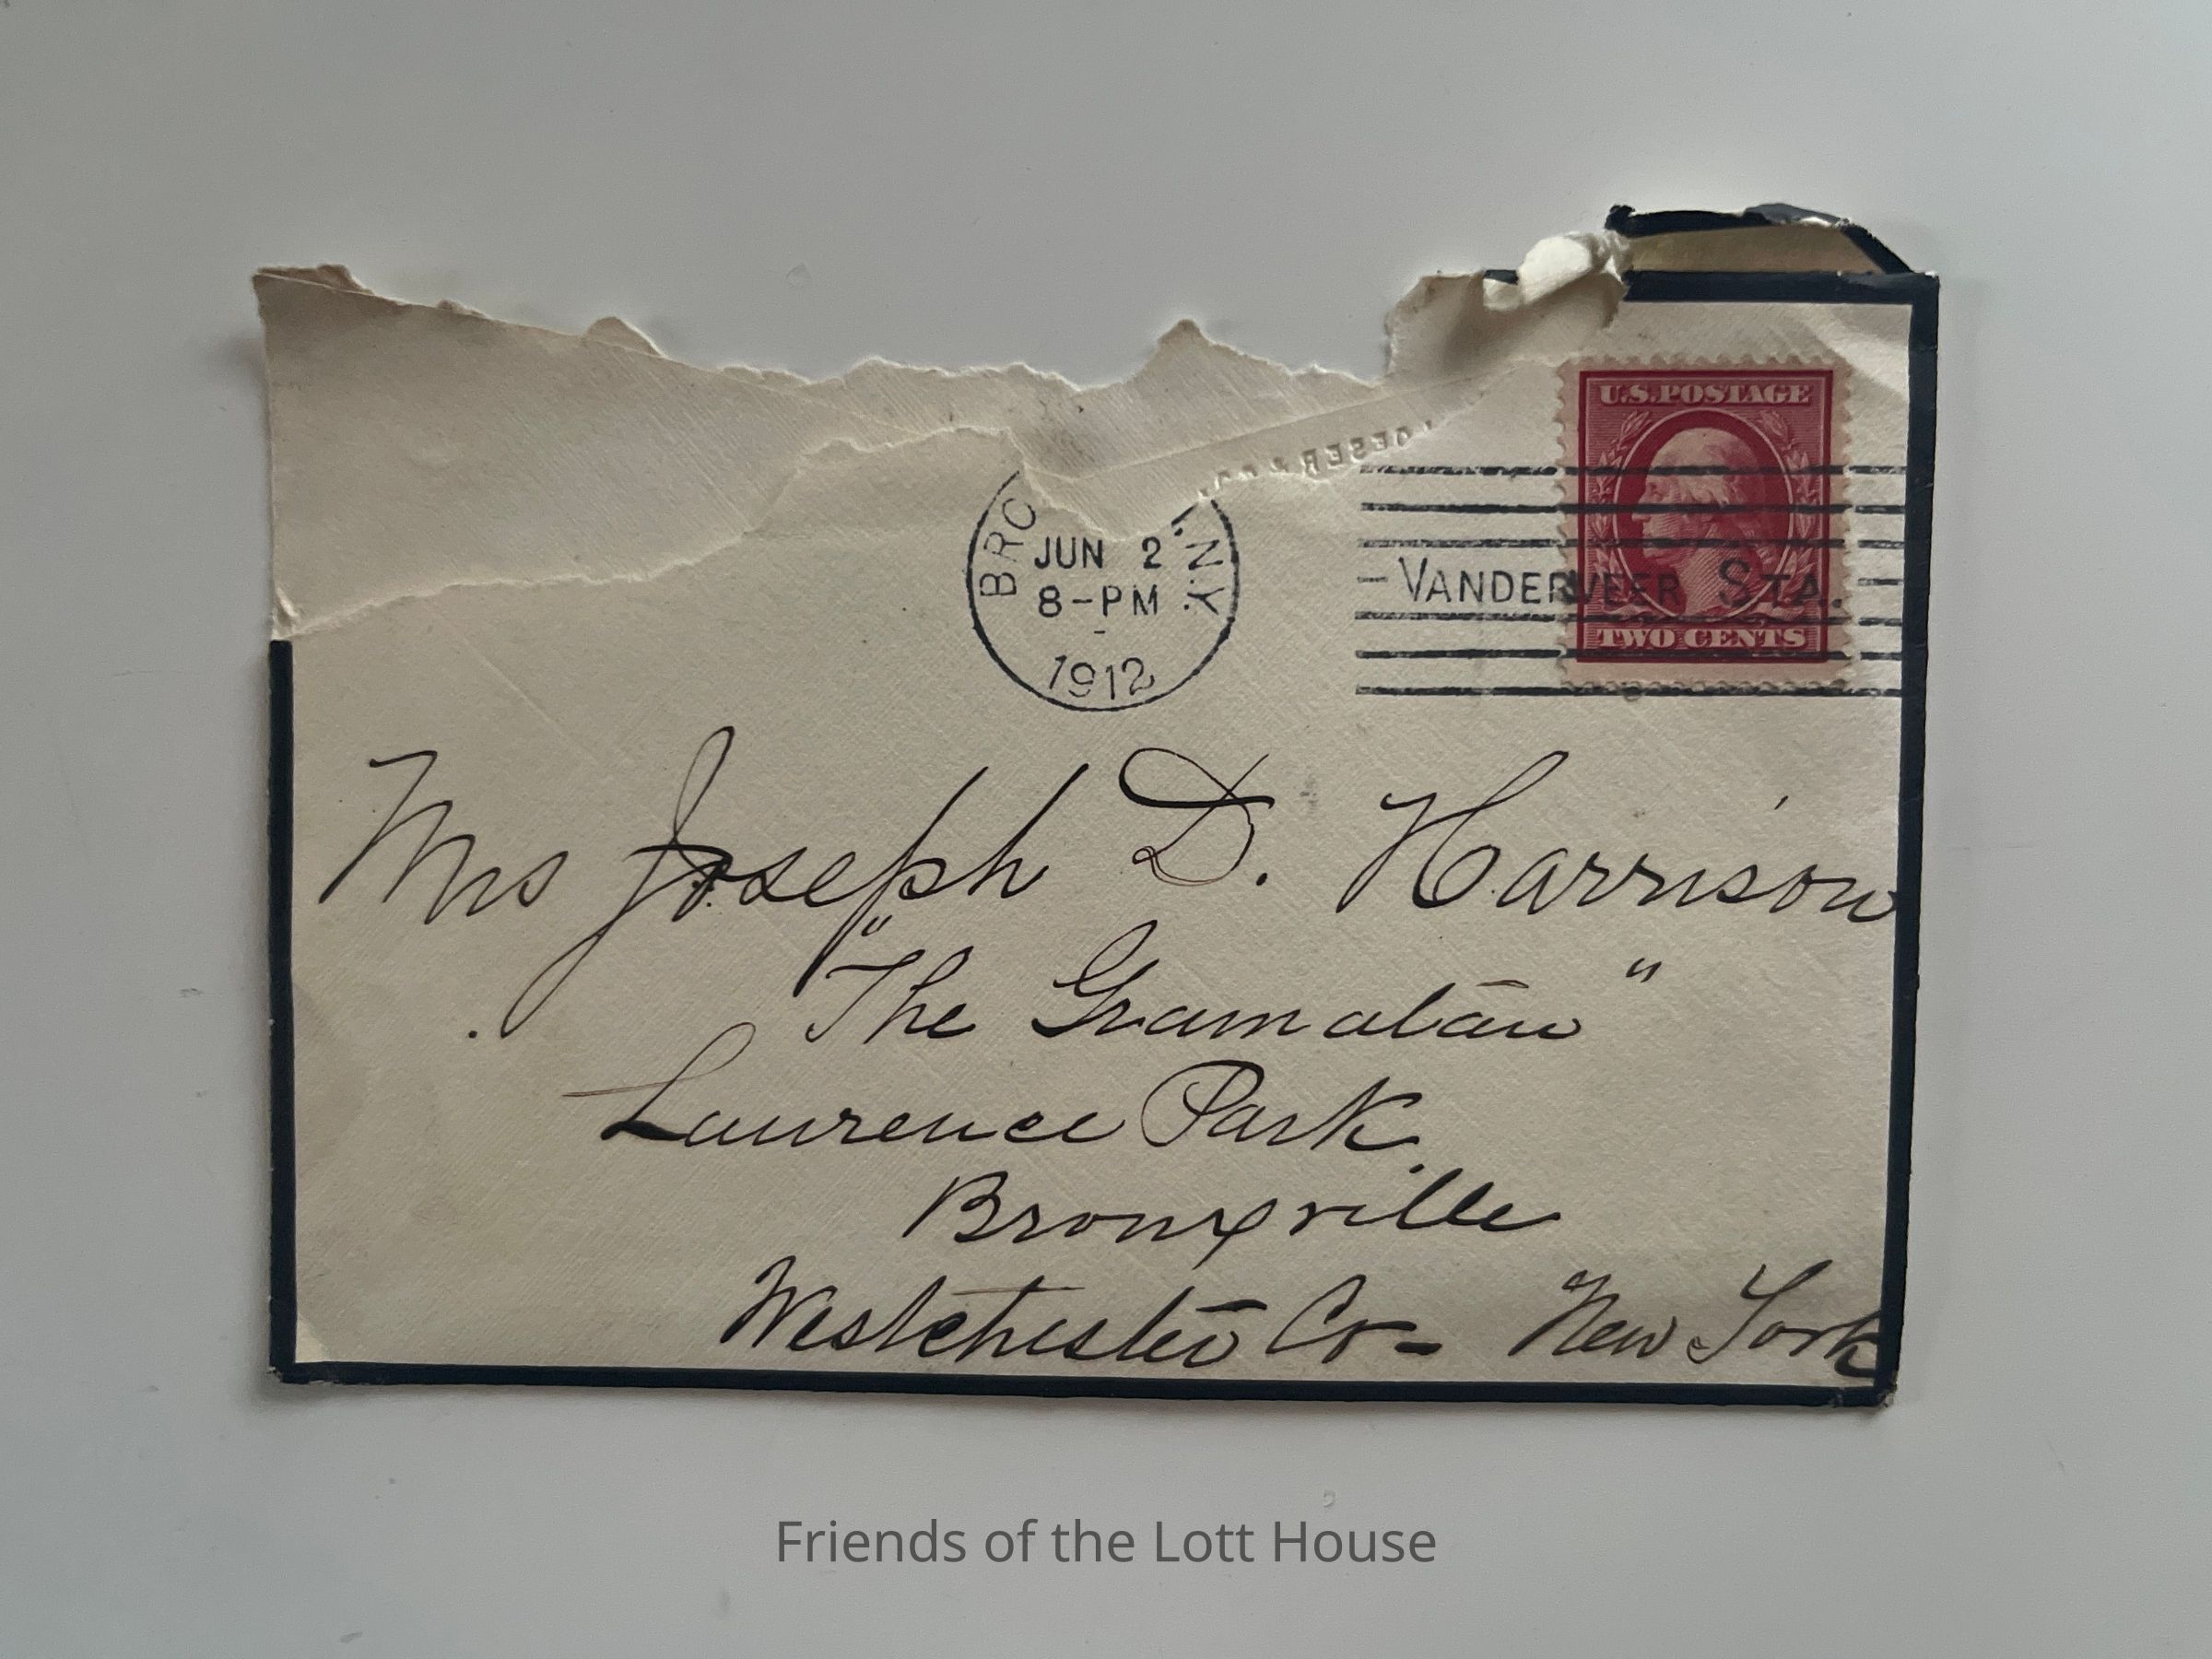 U.S. POSTAGE
OESER & CO.
BRO
, N.Y.
JUN 2
8-PM
1912
VANDERVEER STA.
TWO CENTS
Mrs Joseph D. Harrison
"The Gramatan"
Laurence Park.
Bronxville
Westchester Co- New York
Friends of the Lott House